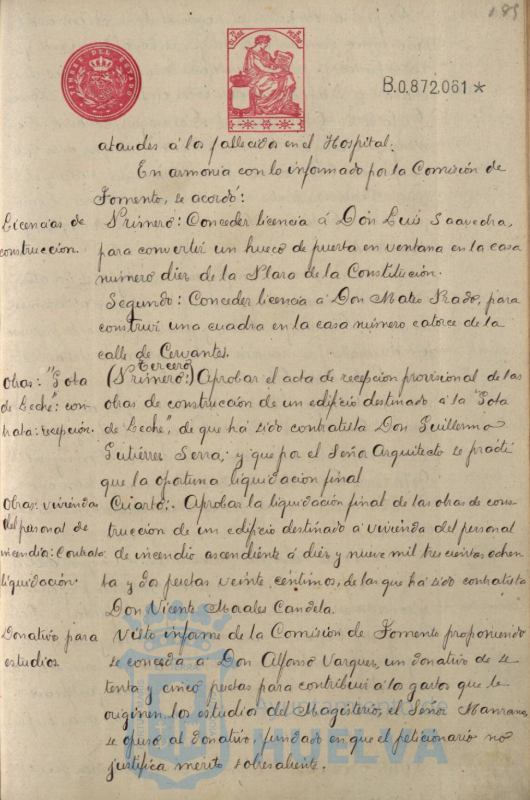 189
TIMBRE DEL ESTADO
B.0.872.061 *
ataudes á los fallecidos en el Hospital.
En armonia con lo informado por la Comisión de
Fomento, se acordó:
Licencias de construcción.
Primero: Conceder licencia á Don Luis Saavedra,
para convertir un hueco de puerta en ventana en la casa
número diez de la Plaza de la Constitución.
Segundo: Conceder licencia á Don Mateo Prado, para
construir una cuadra en la casa número catorce de la
calle de Cervantes.
Obras: "Gota
de Leche": con-
trata: recepción.
Tercero
(Primero:) Aprobar el acta de recepción provisional de las
obras de construcción de un edificio destinado á la "Gota
de Leche", de que há sido contratista Don Guillermo
Gutiérrez Serra, y que por el Señor Arquitecto se practi
que la oportuna liquidación final
Obras: vivienda
del personal de
incendio: Contrata
liquidación.
Cuarto: Aprobar la liquidación final de las obras de cons-
trucción de un edificio destinado á vivienda del personal
de incendio ascendiente á diez y nueve mil trescientas ochen
ta y dos pesetas veinte céntimos, de las que há sido contratista
Don Vicente Morales Candela.
Donativo para
estudios
Visto informe de la Comisión de Fomento proponiendo
se conceda á Don Alfonso Vargues, un donativo de se
tenta y cinco pesetas para contribuir á los gastos que le
originen los estudios del Magisterio, el Señor Manzano,
se opuso al donativo, fundado en que el peticionario no
justifica merito sobresaliente.
Ayuntamiento de
HUELVA